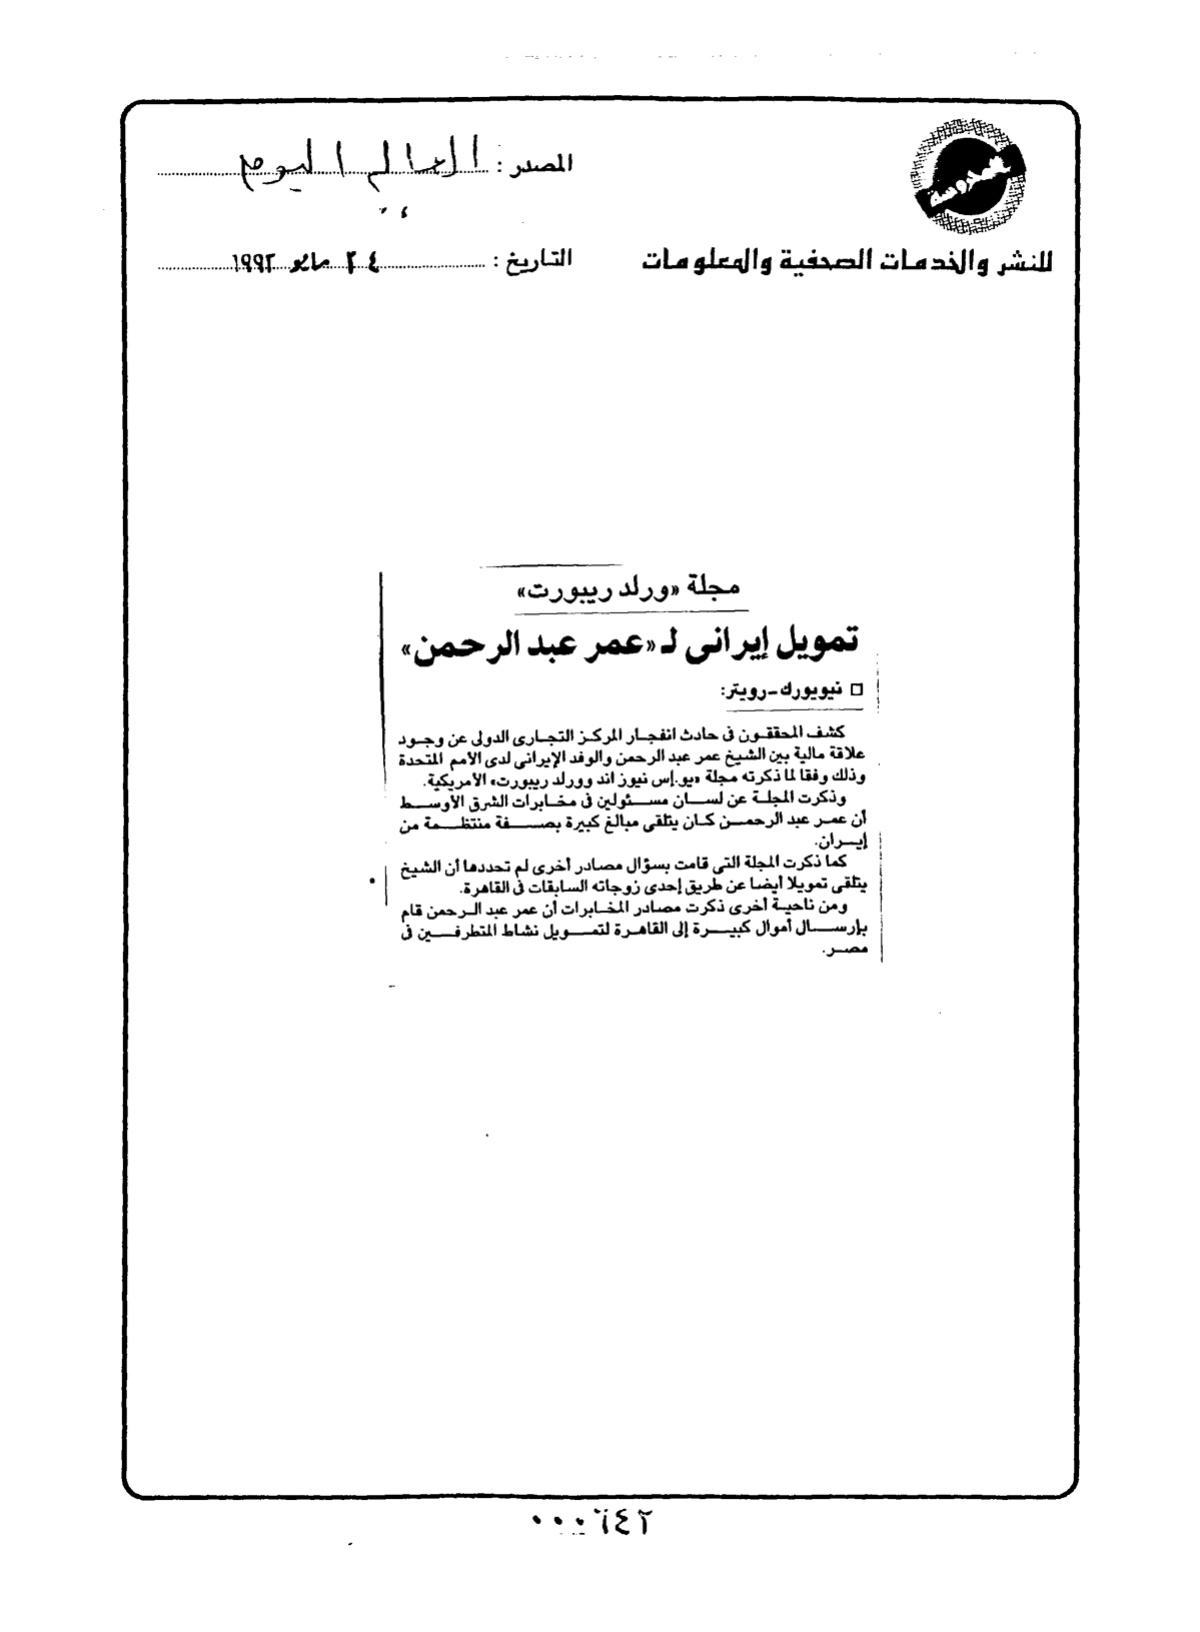 المصدر : العالم اليوم
للنشر والخدمات الصحفية والمعلومات
التاريخ : ٢٤ مايو ١٩٩٢
مجلة «ورلد ريبورت»
تمويل إيرانى لـ «عمر عبد الرحمن»
□ نيويورك-رويتر:
كشف المحققون فى حادث انفجار المركز التجارى الدولى عن وجود
علاقة مالية بين الشيخ عمر عبد الرحمن والوفد الإيرانى لدى الأمم المتحدة
وذلك وفقا لما ذكرته مجلة «يو.إس نيوز اند وورلد ريبورت» الأمريكية.
وذكرت المجلة عن لسان مسئولين فى مخابرات الشرق الأوسط
أن عمر عبد الرحمن كان يتلقى مبالغ كبيرة بصفة منتظمة من
إيران.
كما ذكرت المجلة التى قامت بسؤال مصادر أخرى لم تحددها أن الشيخ
يتلقى تمويلا أيضا عن طريق إحدى زوجاته السابقات فى القاهرة.
ومن ناحية أخرى ذكرت مصادر المخابرات أن عمر عبد الرحمن قام
بإرسال أموال كبيرة إلى القاهرة لتمويل نشاط المتطرفين فى
مصر.
٠٠٠٦٤٢